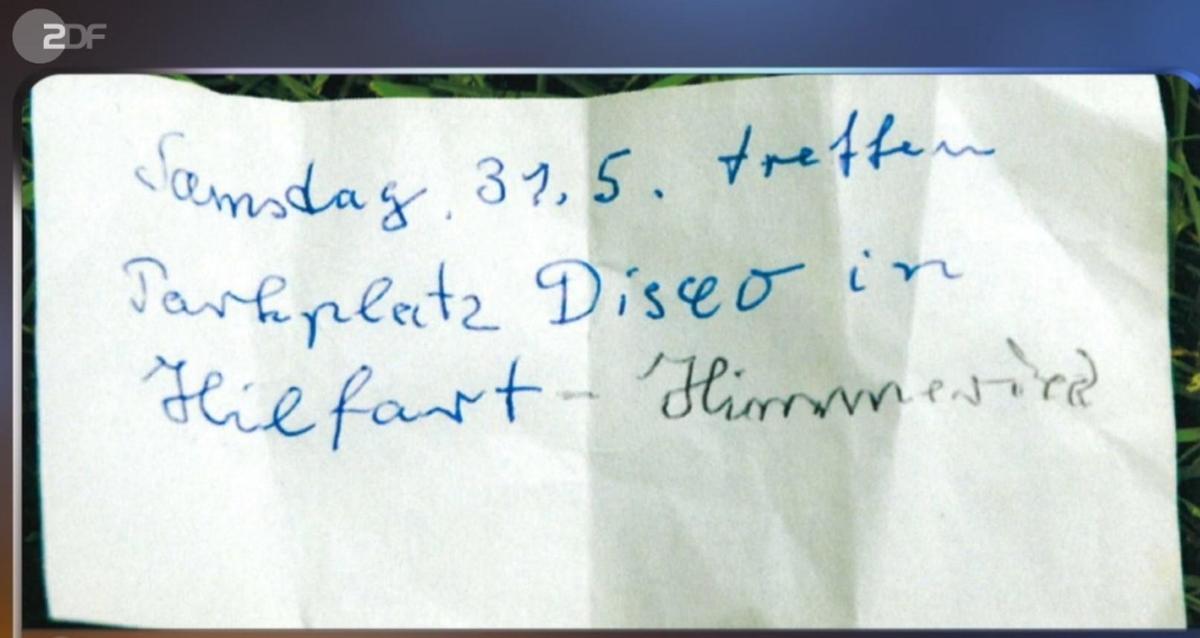 ZDF
Samstag, 31.5. treffen
Parkplatz Disco in
Hilfart - Himmerich